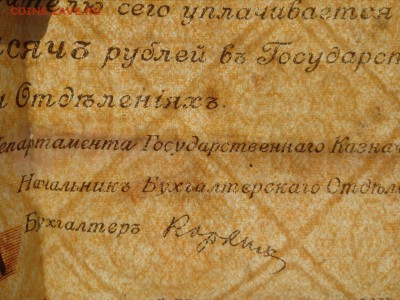 ателю сего уплачивается
сячъ рублей въ Государст
и Отдѣленіяхъ.
Департамента Государственнаго Казнач
Начальникъ Бухгалтерскаго Отдѣле
Бухгалтеръ